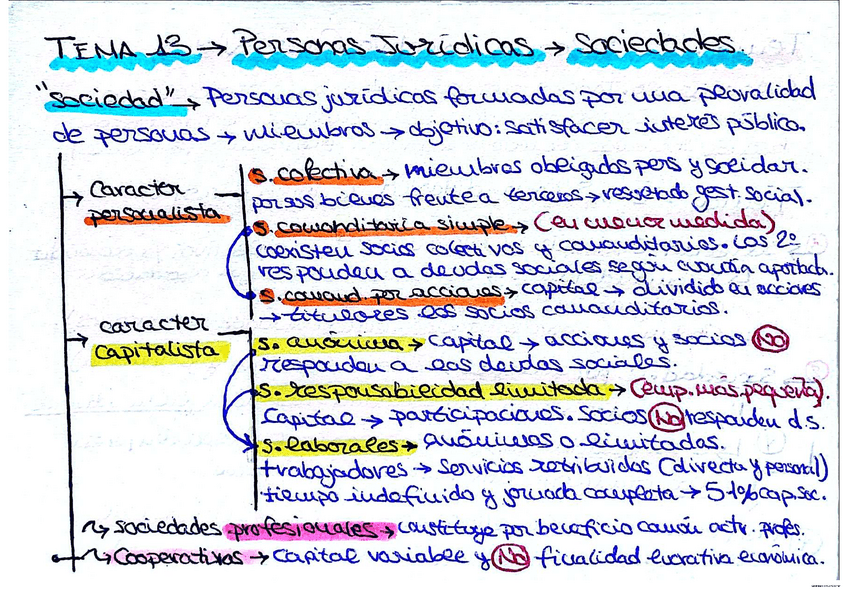 TEMA 13 → Personas Jurídicas → Sociedades.
"sociedad" → Personas jurídicas formadas por una pluralidad
de personas → miembros → objetivo: satisfacer interés público.
→ Caracter personalista
s. colectiva → miembros obligados pers y solidar.
por sus bienes frente a terceros → resultado gest. social.
s. comanditaria simple → (en menor medida)
coexisten socios colectivos y comanditarios. Los 2º
responden a deudas sociales según cuantía aportada.
s. comand. por acciones → capital → dividido en acciones
→ titulares los socios comanditarios.
→ caracter capitalista
s. anónima → capital → acciones y socios NO
responden a las deudas sociales.
s. responsabilidad limitada → (emp. más pequeña).
Capital → participaciones. Socios NO responden d.s.
s. laborales → anónimas o limitadas.
trabajadores → servicios retribuidos (directa y personal)
tiempo indefinido y jornada completa → 51% cap. soc.
↝ sociedades profesionales → constituye por beneficio común actv. profs.
↝ Cooperativas → capital variable y NO finalidad lucrativa económica.